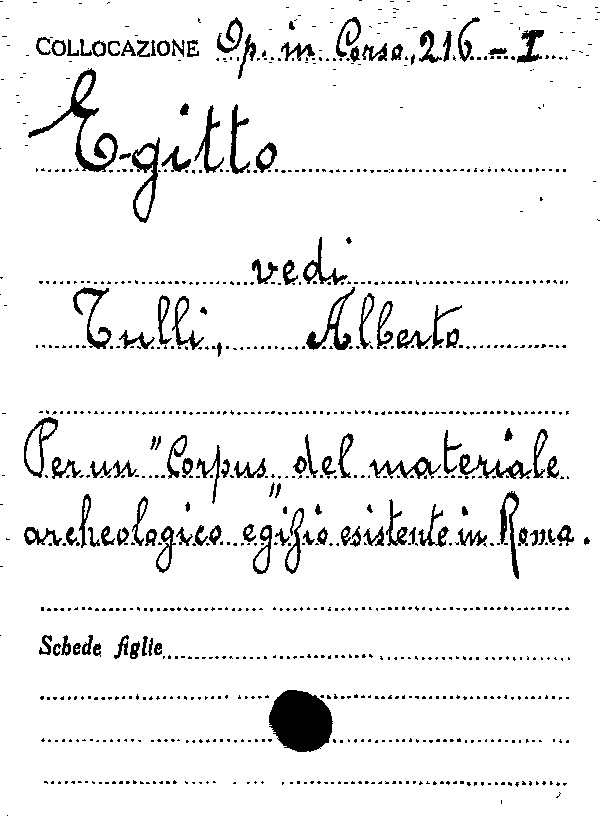 COLLOCAZIONE Op. in Corso, 216 - I
Egitto
vedi
Tulli, Alberto
Per un "Corpus„ del materiale
archeologico egizio esistente in Roma.
Schede figlie